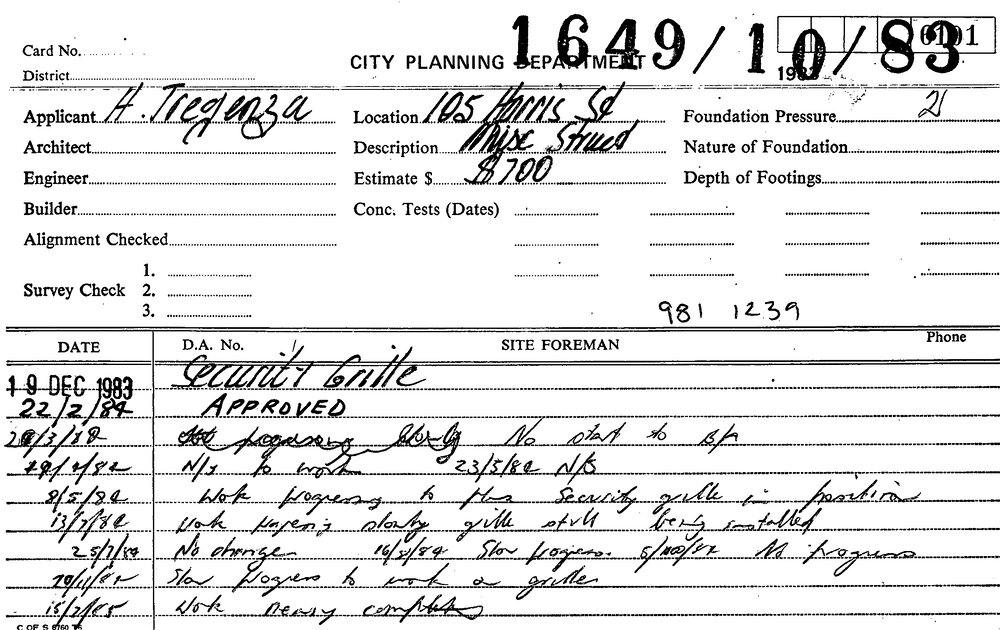 1649/10/83
0101
Card No.
CITY PLANNING DEPARTMENT
198
District
Applicant H. Tregenza Location 105 Harris St Foundation Pressure 21
Architect Description Misc Struct Nature of Foundation
Engineer Estimate $ $700 Depth of Footings
Builder Conc. Tests (Dates)
Alignment Checked
1.
Survey Check 2.
3.
981 1239
DATE D.A. No. SITE FOREMAN Phone
19 DEC 1983 Security Grille
22/2/84 APPROVED
No start to B/A
N/S to work 23/5/84 N/S
8/5/84 Work progressing to plan Security grille in position
13/7/84 Work progressing slowly grille still being installed
25/7/84 No change 16/8/84 Slow progress. No progress
Slow progress to work on grille
15/2/85 Work nearly complete
C OF S 8760 75